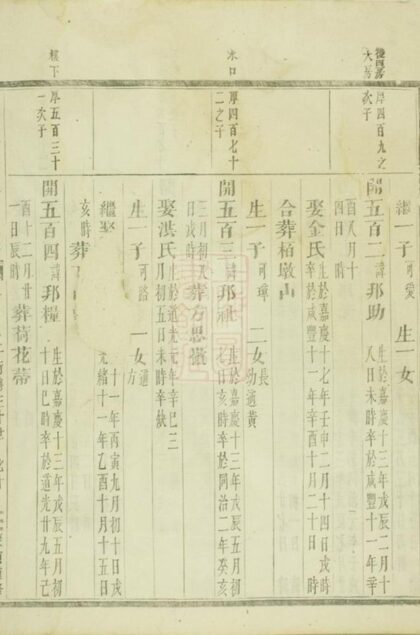 後四房
大房
厚四百九之
次子
繼一子可愛 生一女
開五百二諱邦助 生於嘉慶十三年戊辰五月初
八日未時卒於咸豐十一年辛
酉八月十
四日時
娶金氏 生於嘉慶十七年壬申二月十四日戌時
卒於咸豐十一年辛酉十月二十日時
合葬栢墩山
水口
厚四百七十
二之子
生一子可璋 二女長
幼適黃
開五百三諱邦 生於嘉慶十三年戊辰五月初
七日亥時卒於同治二年癸亥
三月初八
日戌時 葬方思
娶洪氏 生於道光元年辛巳三
月初 日未時卒缺
生一子可 一女適
方
繼娶
十一年丙寅九月初十日戌
光緒十一年乙酉十月十五日
亥時 葬
樓下
厚五百三十
一次子
開五百四諱邦糧 生於嘉慶十三年戊辰五月初
十日巳時卒於道光廿九年己
酉十二月廿
一日辰時 葬荷花